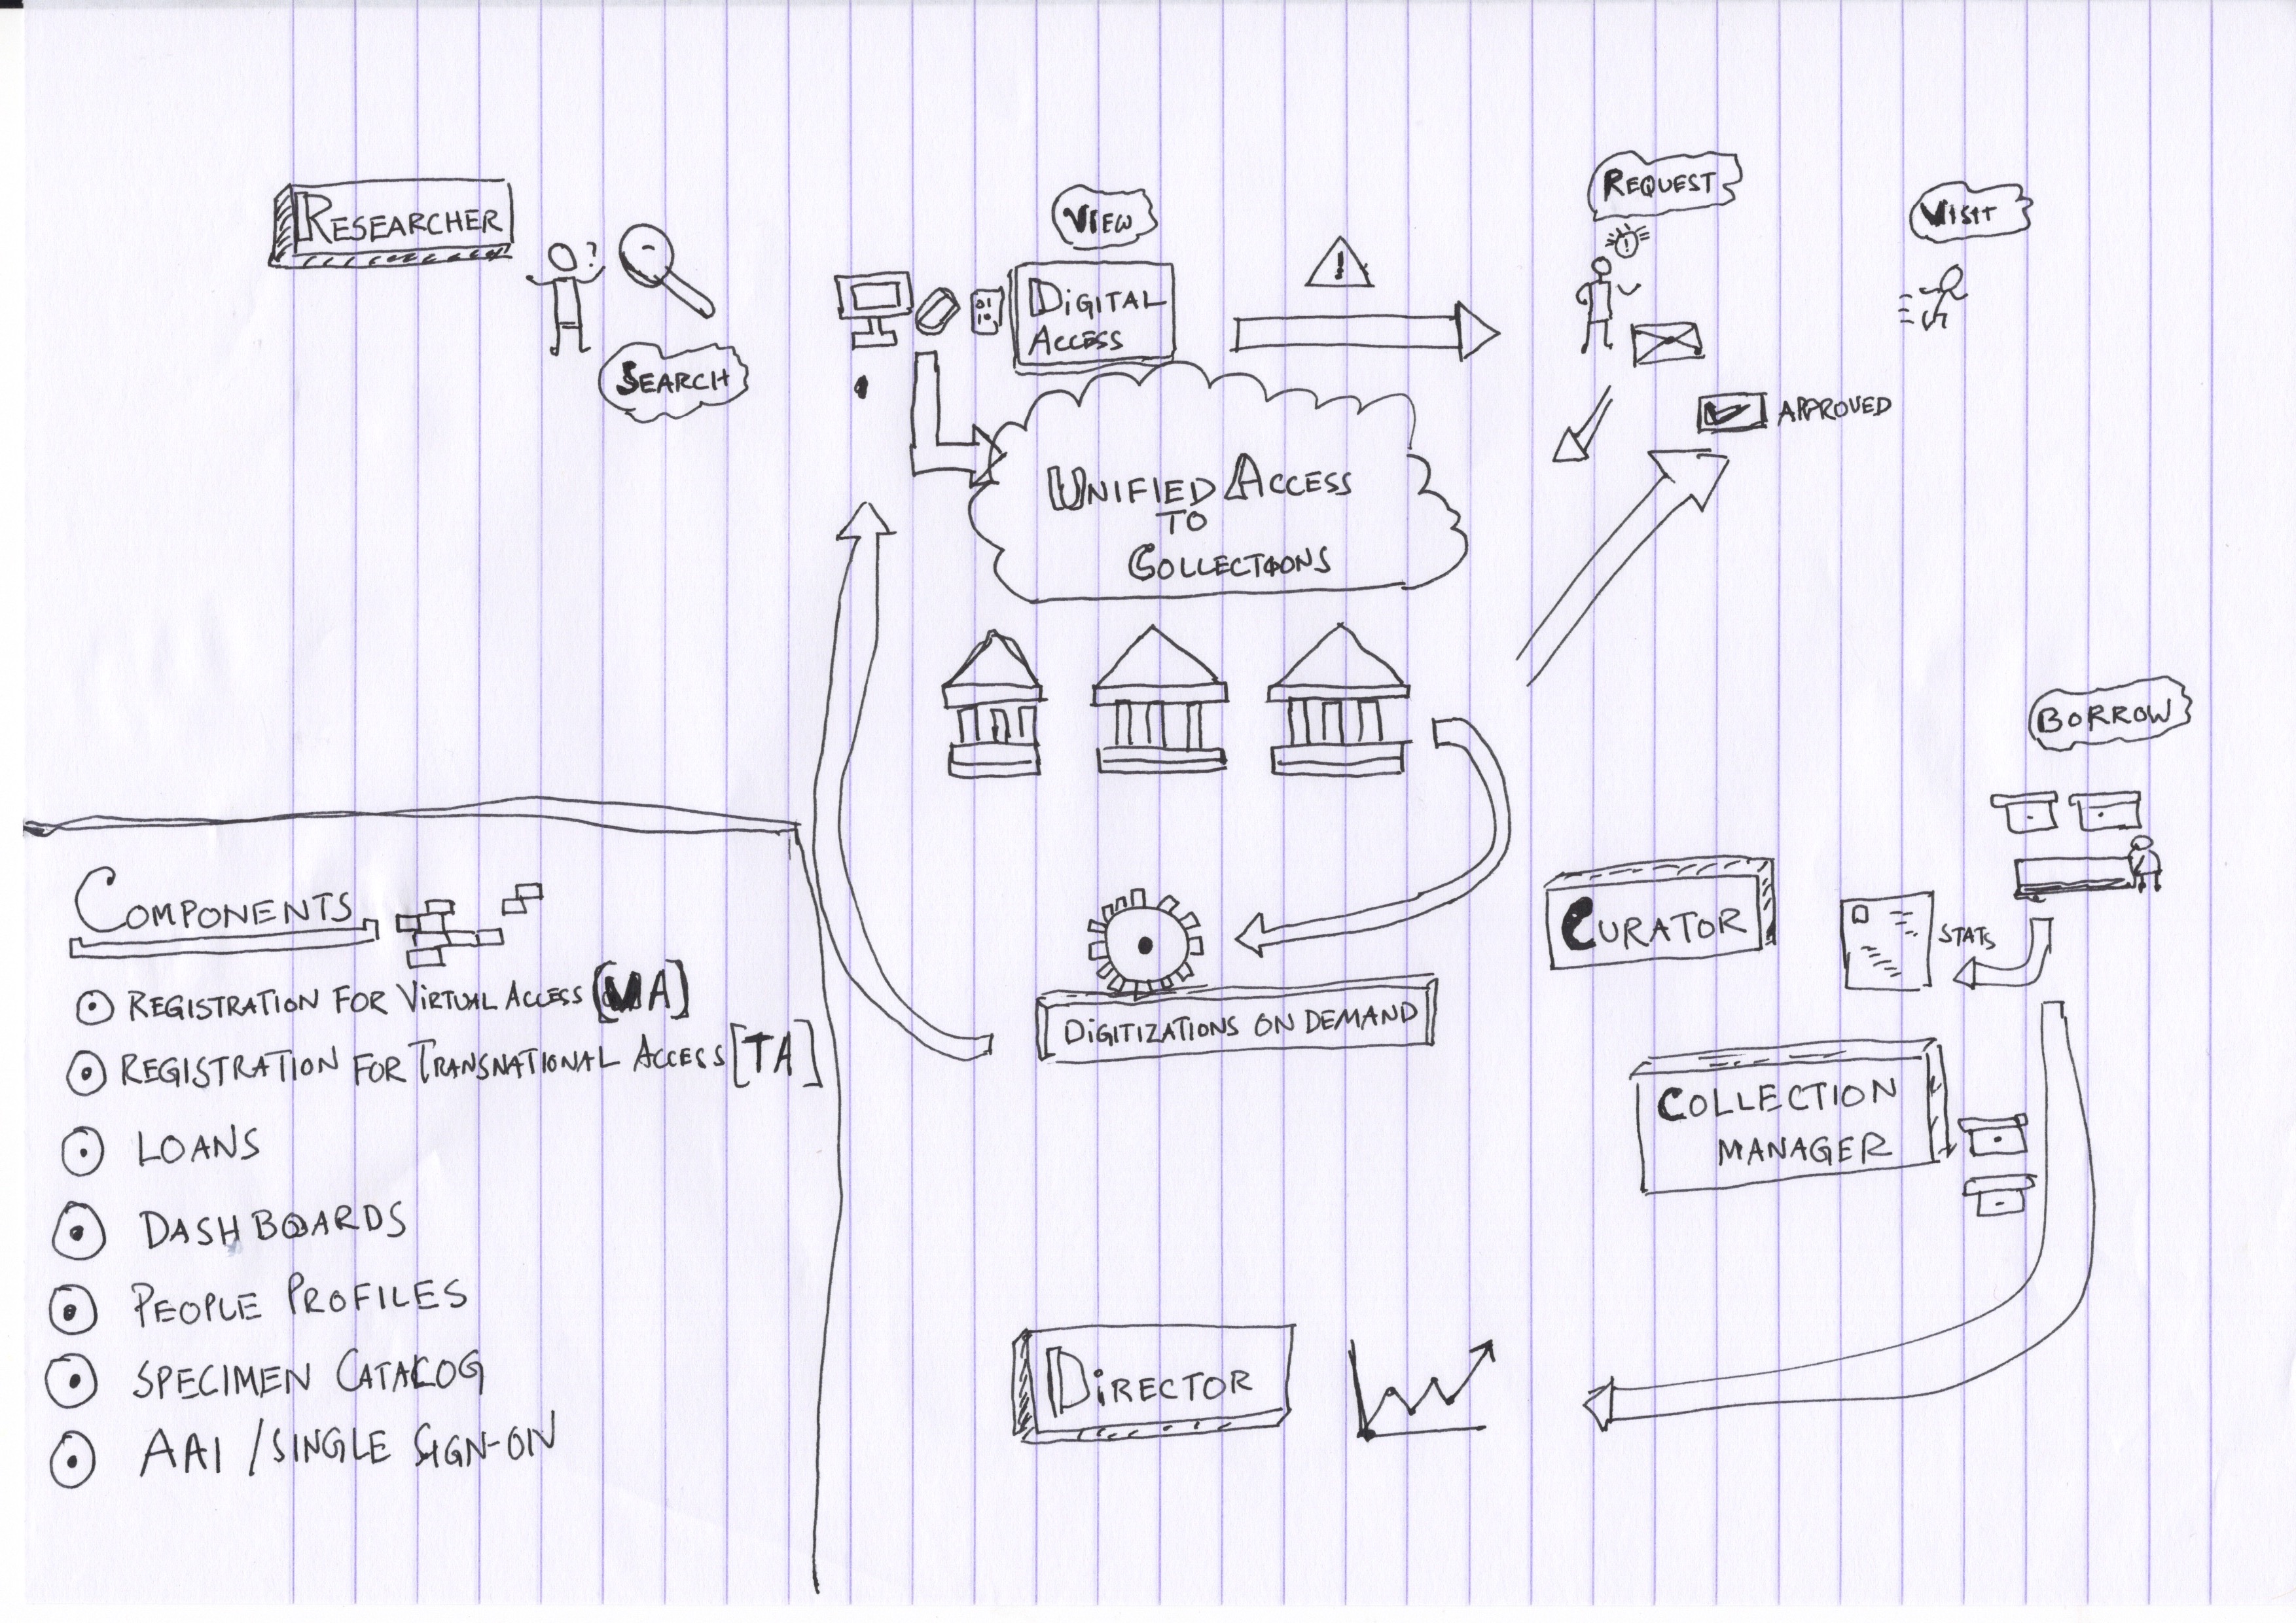 RESEARCHER
?
SEARCH
VIEW
DIGITAL
ACCESS
!
REQUEST
!
VISIT
APPROVED
UNIFIED ACCESS
TO
COLLECTIONS
BORROW
CURATOR
STATS
DIGITIZATIONS ON DEMAND
COLLECTION
MANAGER
DIRECTOR
COMPONENTS
REGISTRATION FOR VIRTUAL ACCESS [VA]
REGISTRATION FOR TRANSNATIONAL ACCESS [TA]
LOANS
DASHBOARDS
PEOPLE PROFILES
SPECIMEN CATALOG
AAI / SINGLE SIGN-ON